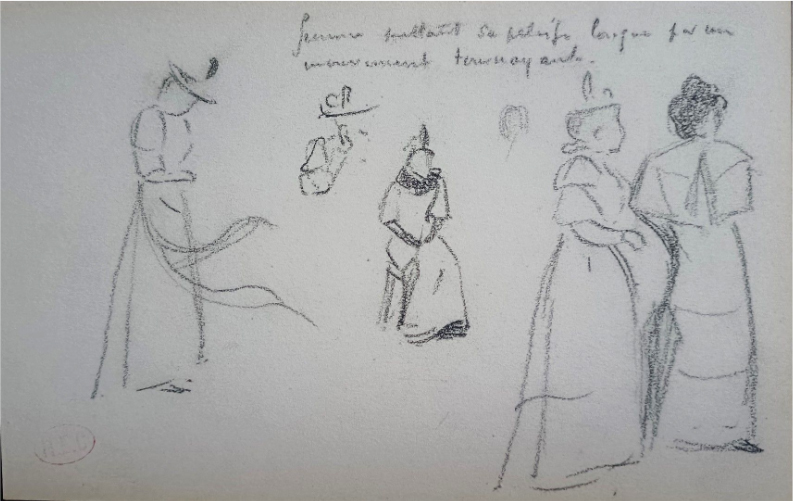 Femme mettant sa pelisse longue par un
mouvement tournoyant.
H.E.C